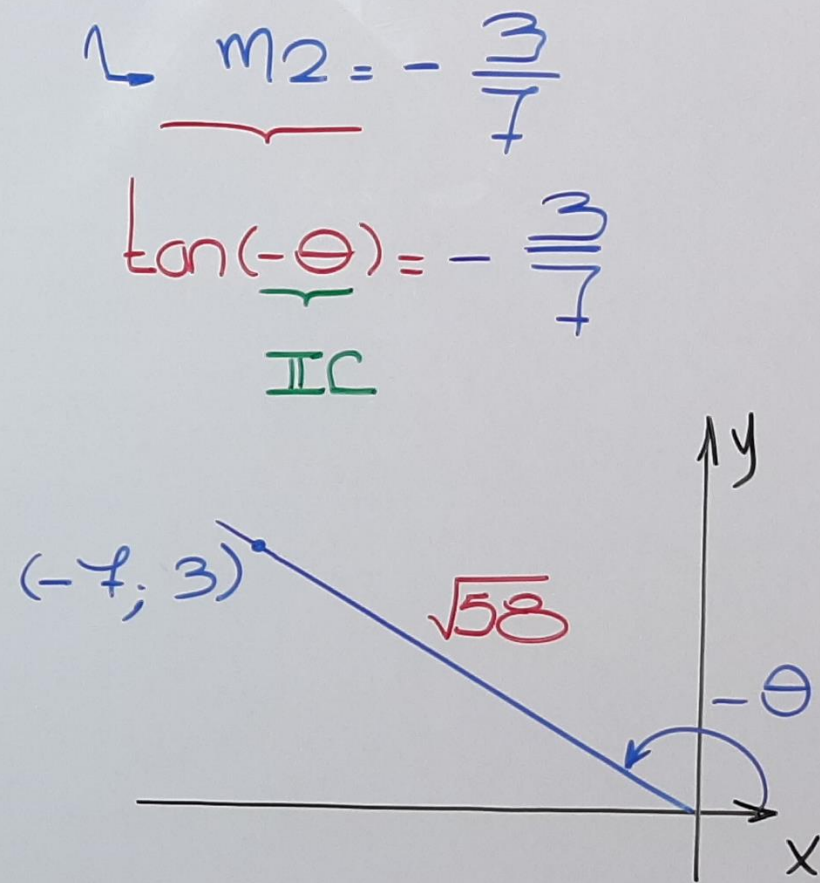 m2 = - 3/7
tan(-θ) = - 3/7
IIC
y
(-7; 3)
√58
-θ
x